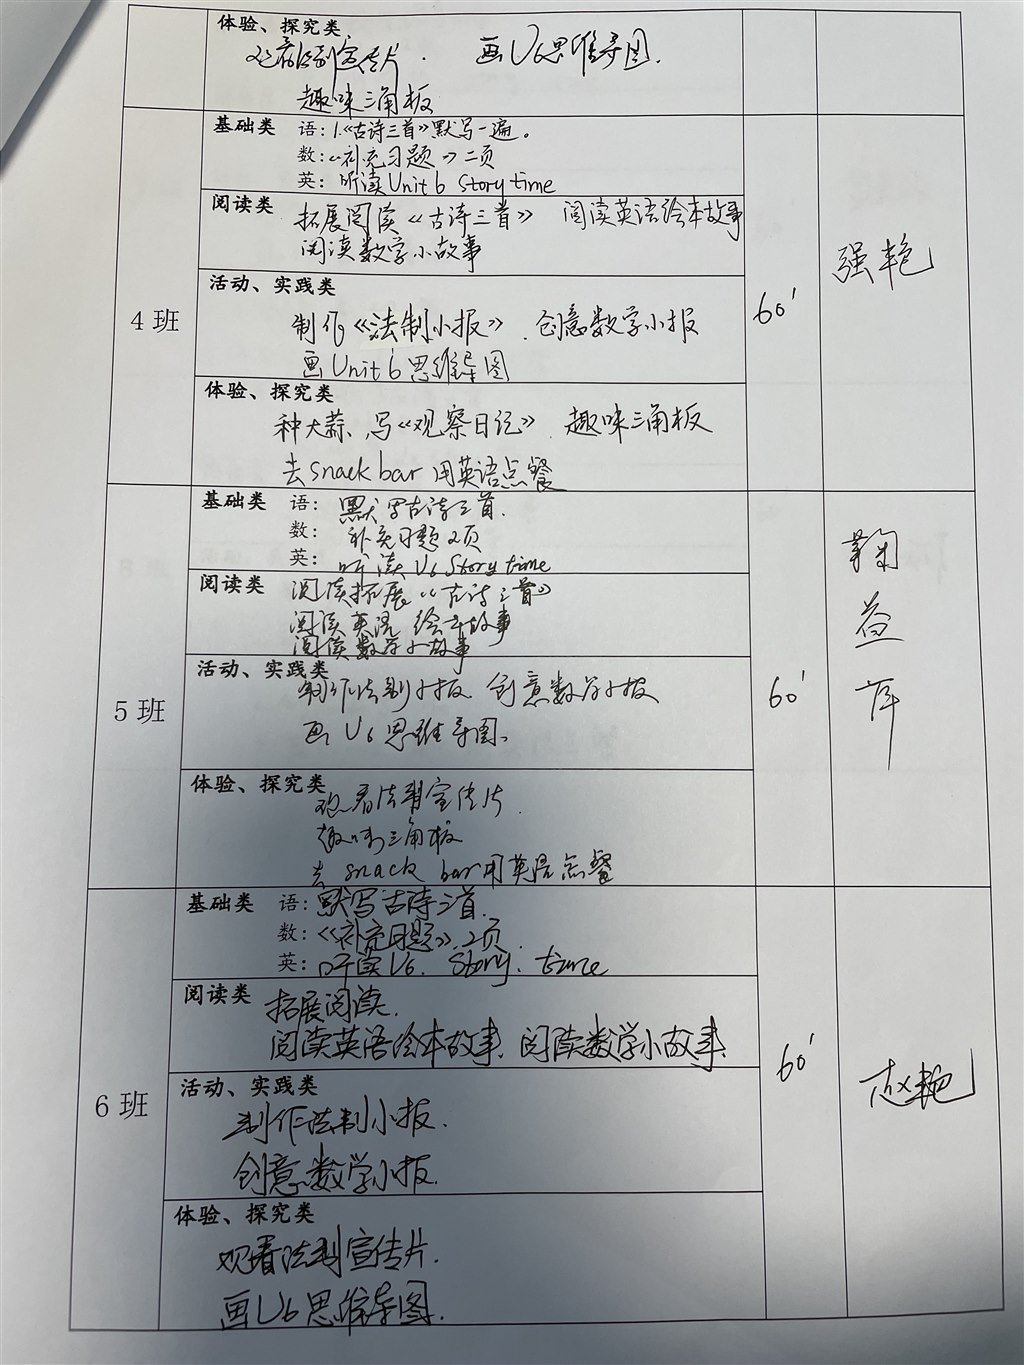 体验、探究类
观看法制宣传片. 画U6思维导图.
趣味三角板
4班
基础类 语: 1.《古诗三首》默写一遍。
数:《补充习题》二页
英: 听读Unit 6 Story time
阅读类
拓展阅读《古诗三首》 阅读英语绘本故事
阅读数学小故事
活动、实践类
制作《法制小报》. 创意数学小报
画Unit 6思维导图
体验、探究类
种大蒜、写《观察日记》. 趣味三角板
去snack bar用英语点餐
60'
强艳
5班
基础类 语: 默写古诗三首.
数: 补充习题2页
英: 听读 U6 Story time
阅读类 阅读拓展《古诗三首》
阅读英语 绘本故事
阅读数学小故事
活动、实践类
制作法制小报. 创意数学小报
画 U6 思维导图。
体验、探究类
观看法制宣传片.
趣味三角板
去 snack bar用英语点餐
60'
鞠
益
萍
6班
基础类 语: 默写古诗三首.
数:《补充习题》.2页.
英: 听读U6. Story. time
阅读类
拓展阅读.
阅读英语绘本故事. 阅读数学小故事.
活动、实践类
制作法制小报.
创意数学小报.
体验、探究类
观看法制宣传片.
画U6思维导图.
60'
赵艳